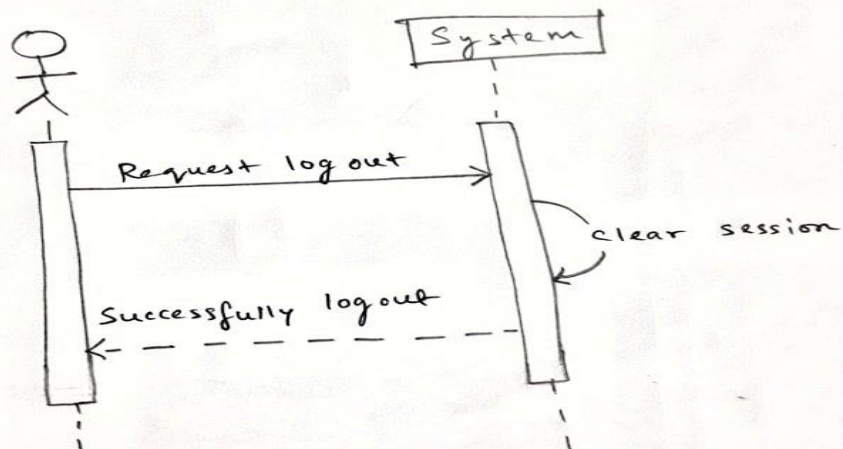 System
Request log out
clear session
Successfully logout